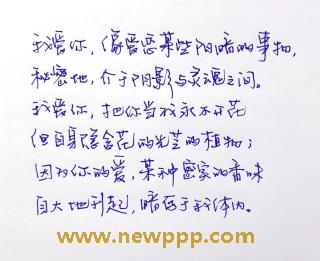 我爱你,像爱恋某些阴暗的事物,
秘密地,介于阴影与灵魂之间。
我爱你,把你当成永不开花
但自身隐含花的光芒的植物;
因为你的爱,某种密实的香味
自大地升起,暗居于我体内。
www.newppp.com